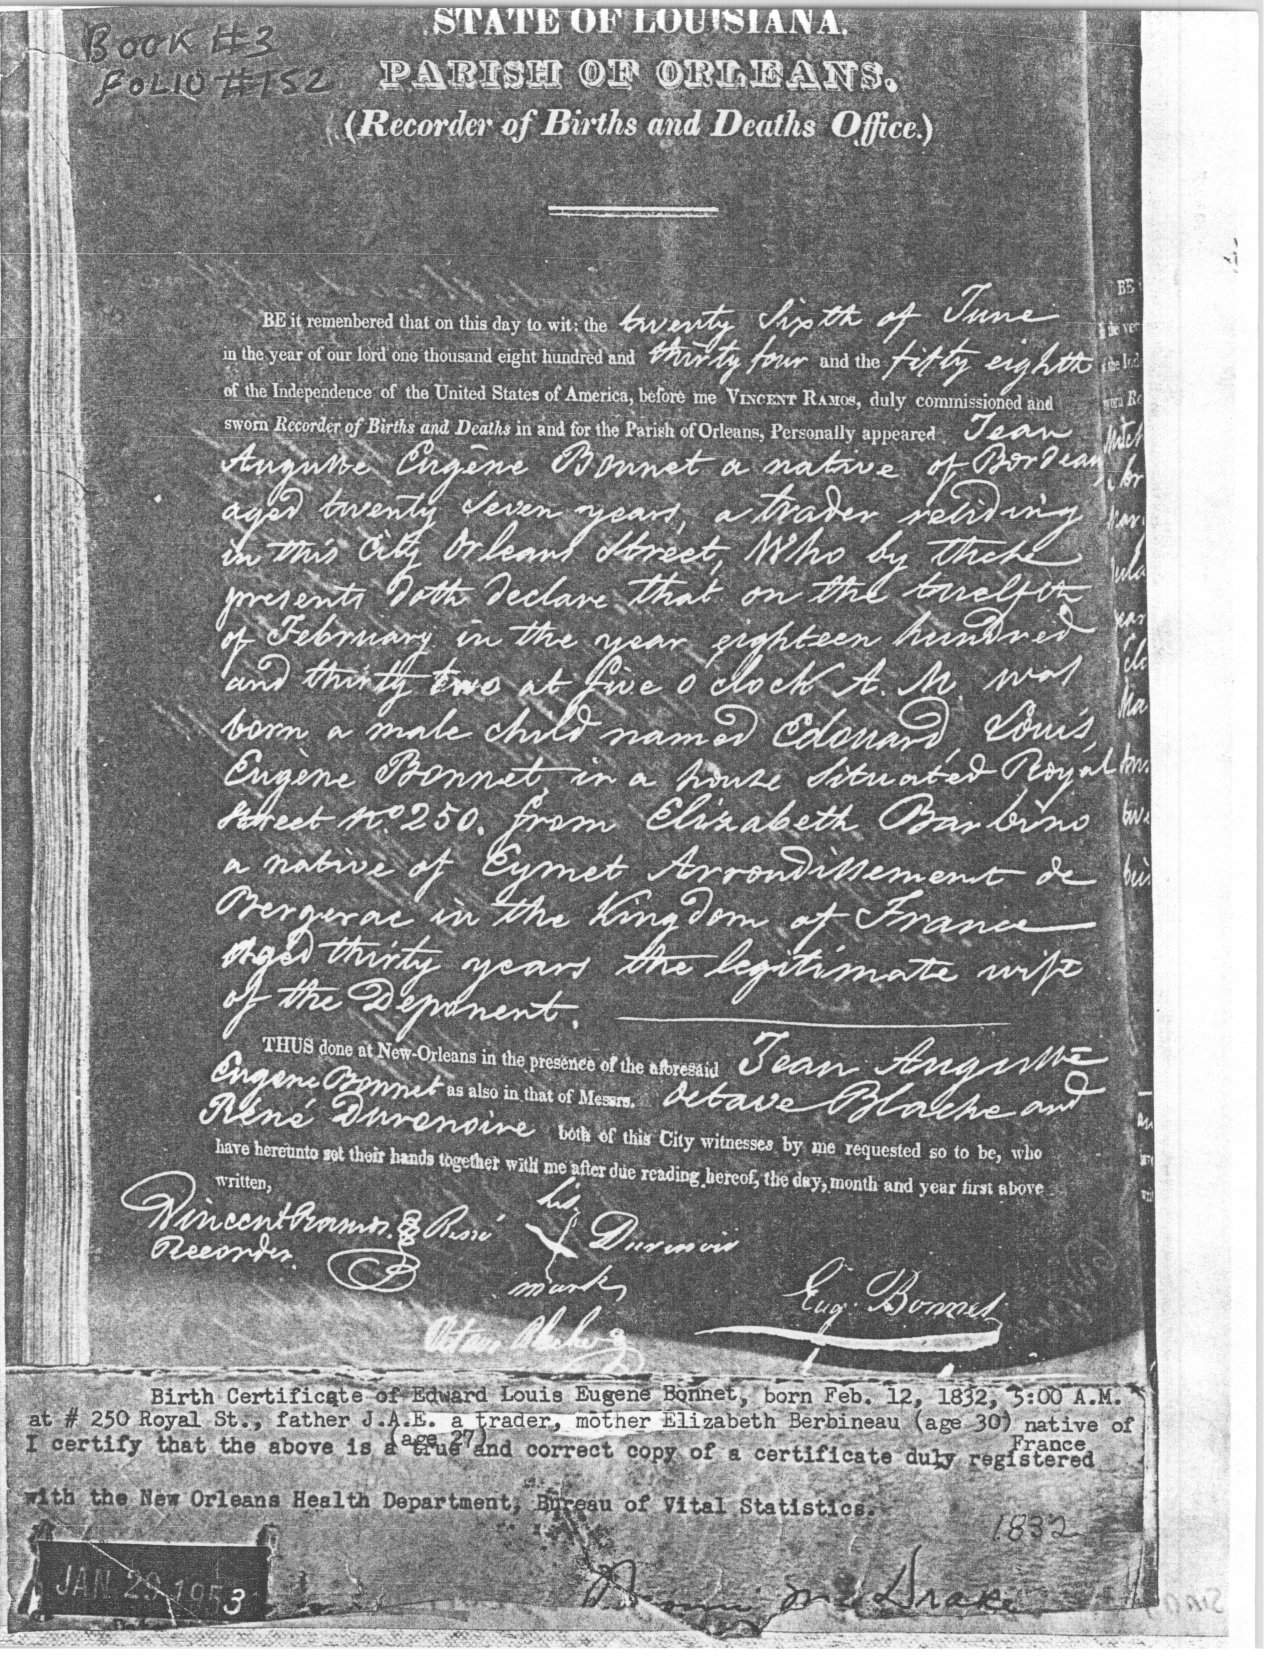 BOOK #3
FOLIO #152
STATE OF LOUISIANA.
PARISH OF ORLEANS.
(Recorder of Births and Deaths Office.)
BE it remenbered that on this day to wit: the twenty Sixth of June
in the year of our lord one thousand eight hundred and thirty four and the fifty eighth
of the Independence of the United States of America, before me VINCENT RAMOS, duly commissioned and
sworn Recorder of Births and Deaths in and for the Parish of Orleans, Personally appeared Jean
Auguste Eugène Bonnet a native of Bordeaux
aged twenty Seven years, a trader residing
in this City Orleans Street, Who by these
presents doth declare that on the twelfth
of February in the year eighteen hundred
and thirty two at five o'clock A. M. was
born a male child named Edouard, Louis,
Eugène Bonnet, in a house situated Royal
Street No. 250. from Elizabeth Barbino
a native of Eymet Arrondissement de
Bergerac in the Kingdom of France
Aged thirty years the legitimate wife
of the Deponent.
THUS done at New-Orleans in the presence of the aforesaid Jean Auguste
Eugene Bonnet as also in that of Messrs. Octave Blache and
Réné Durenoire both of this City witnesses by me requested so to be, who
have hereunto set their hands together with me after due reading hereof, the day, month and year first above
written,
Vincent Ramos. René his Durenoir
Recorder. mark
Eug. Bonnet
Birth Certificate of Edward Louis Eugene Bonnet, born Feb. 12, 1832, 5:00 A.M.
at # 250 Royal St., father J.A.E. a trader, mother Elizabeth Berbineau (age 30) native of
(age 27) France
I certify that the above is a true and correct copy of a certificate duly registered
with the New Orleans Health Department, Bureau of Vital Statistics.
1832
JAN 29 1953